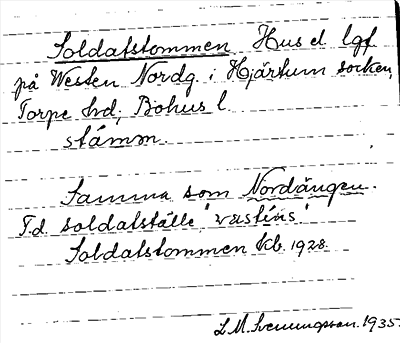 Soldatstommen Hus el lgf
på Westen Nordg. i Hjärtum socken,
Torpe hd; Bohus l.
stämm.
Samma som Nordängen.
F.d. soldatställe "västins"
Soldatstommen kb. 1928
L.M. Svenungsson. 1935.